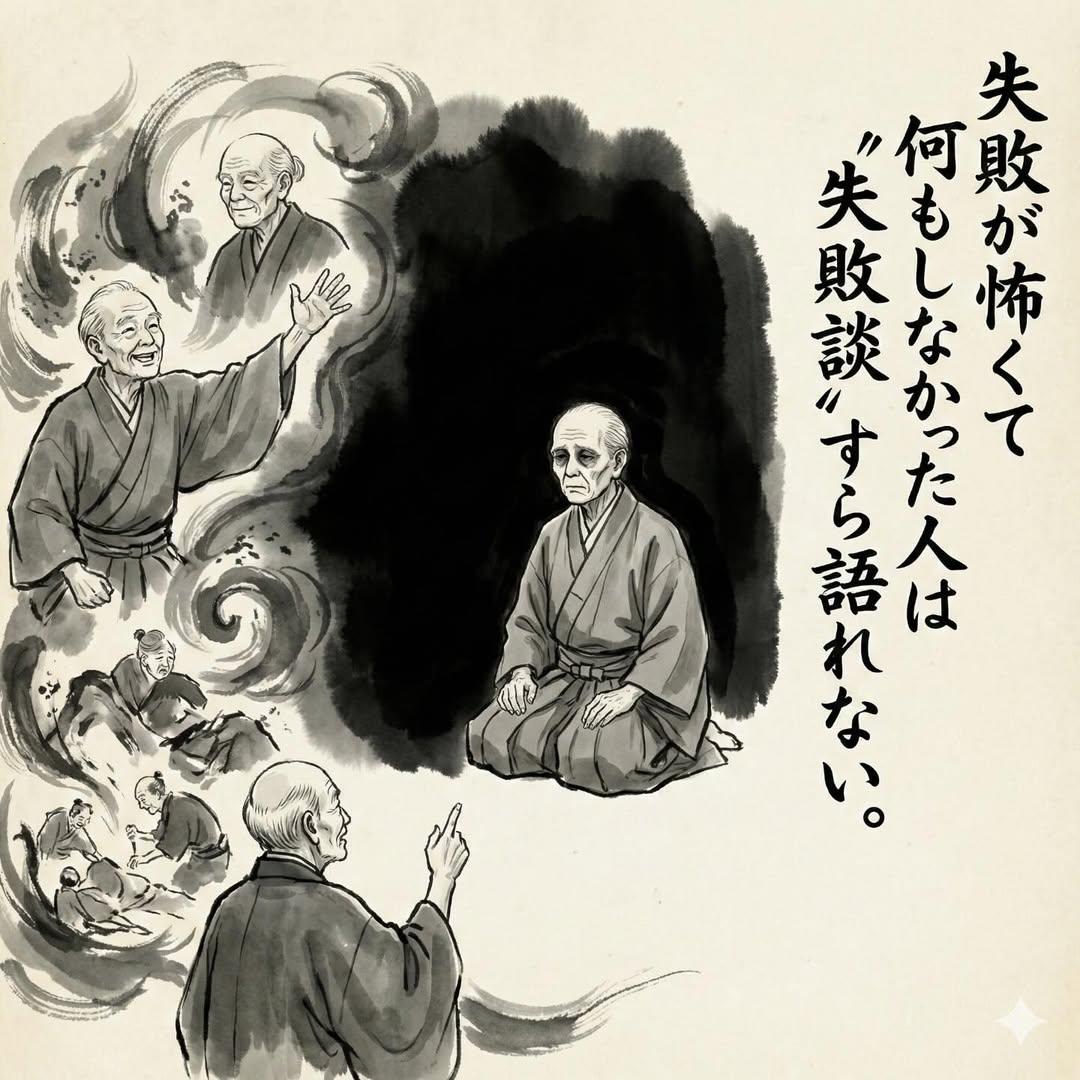 失敗が怖くて
何もしなかった人は
〝失敗談〟すら語れない。